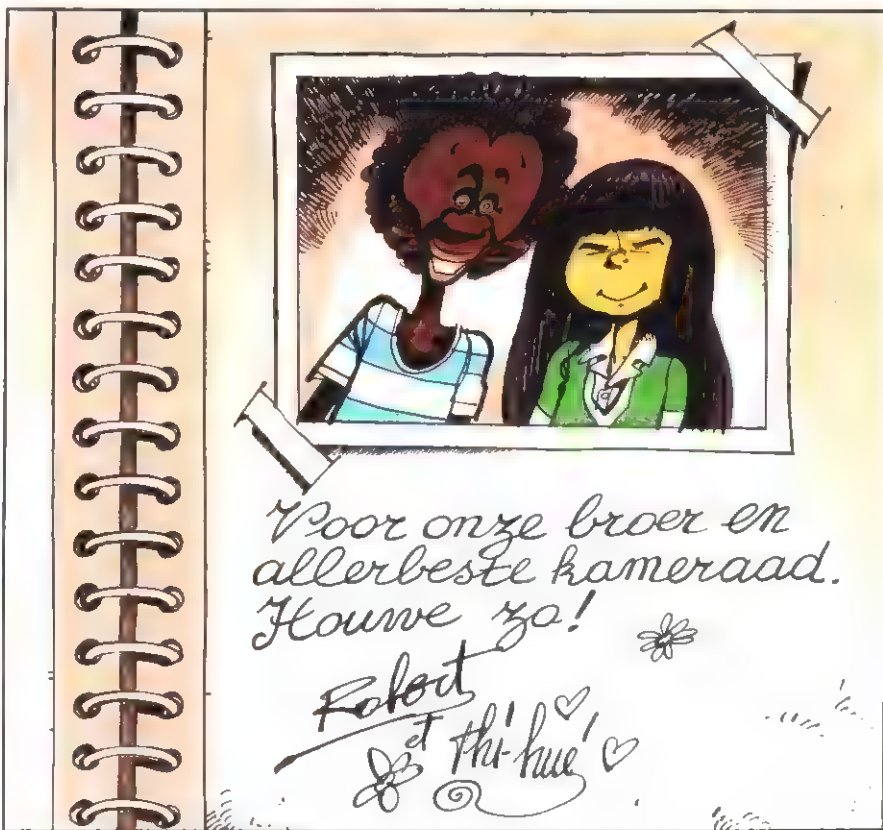 Voor onze broer en
allerbeste kameraad.
Houwe zo!
Robert
et Thi-hué